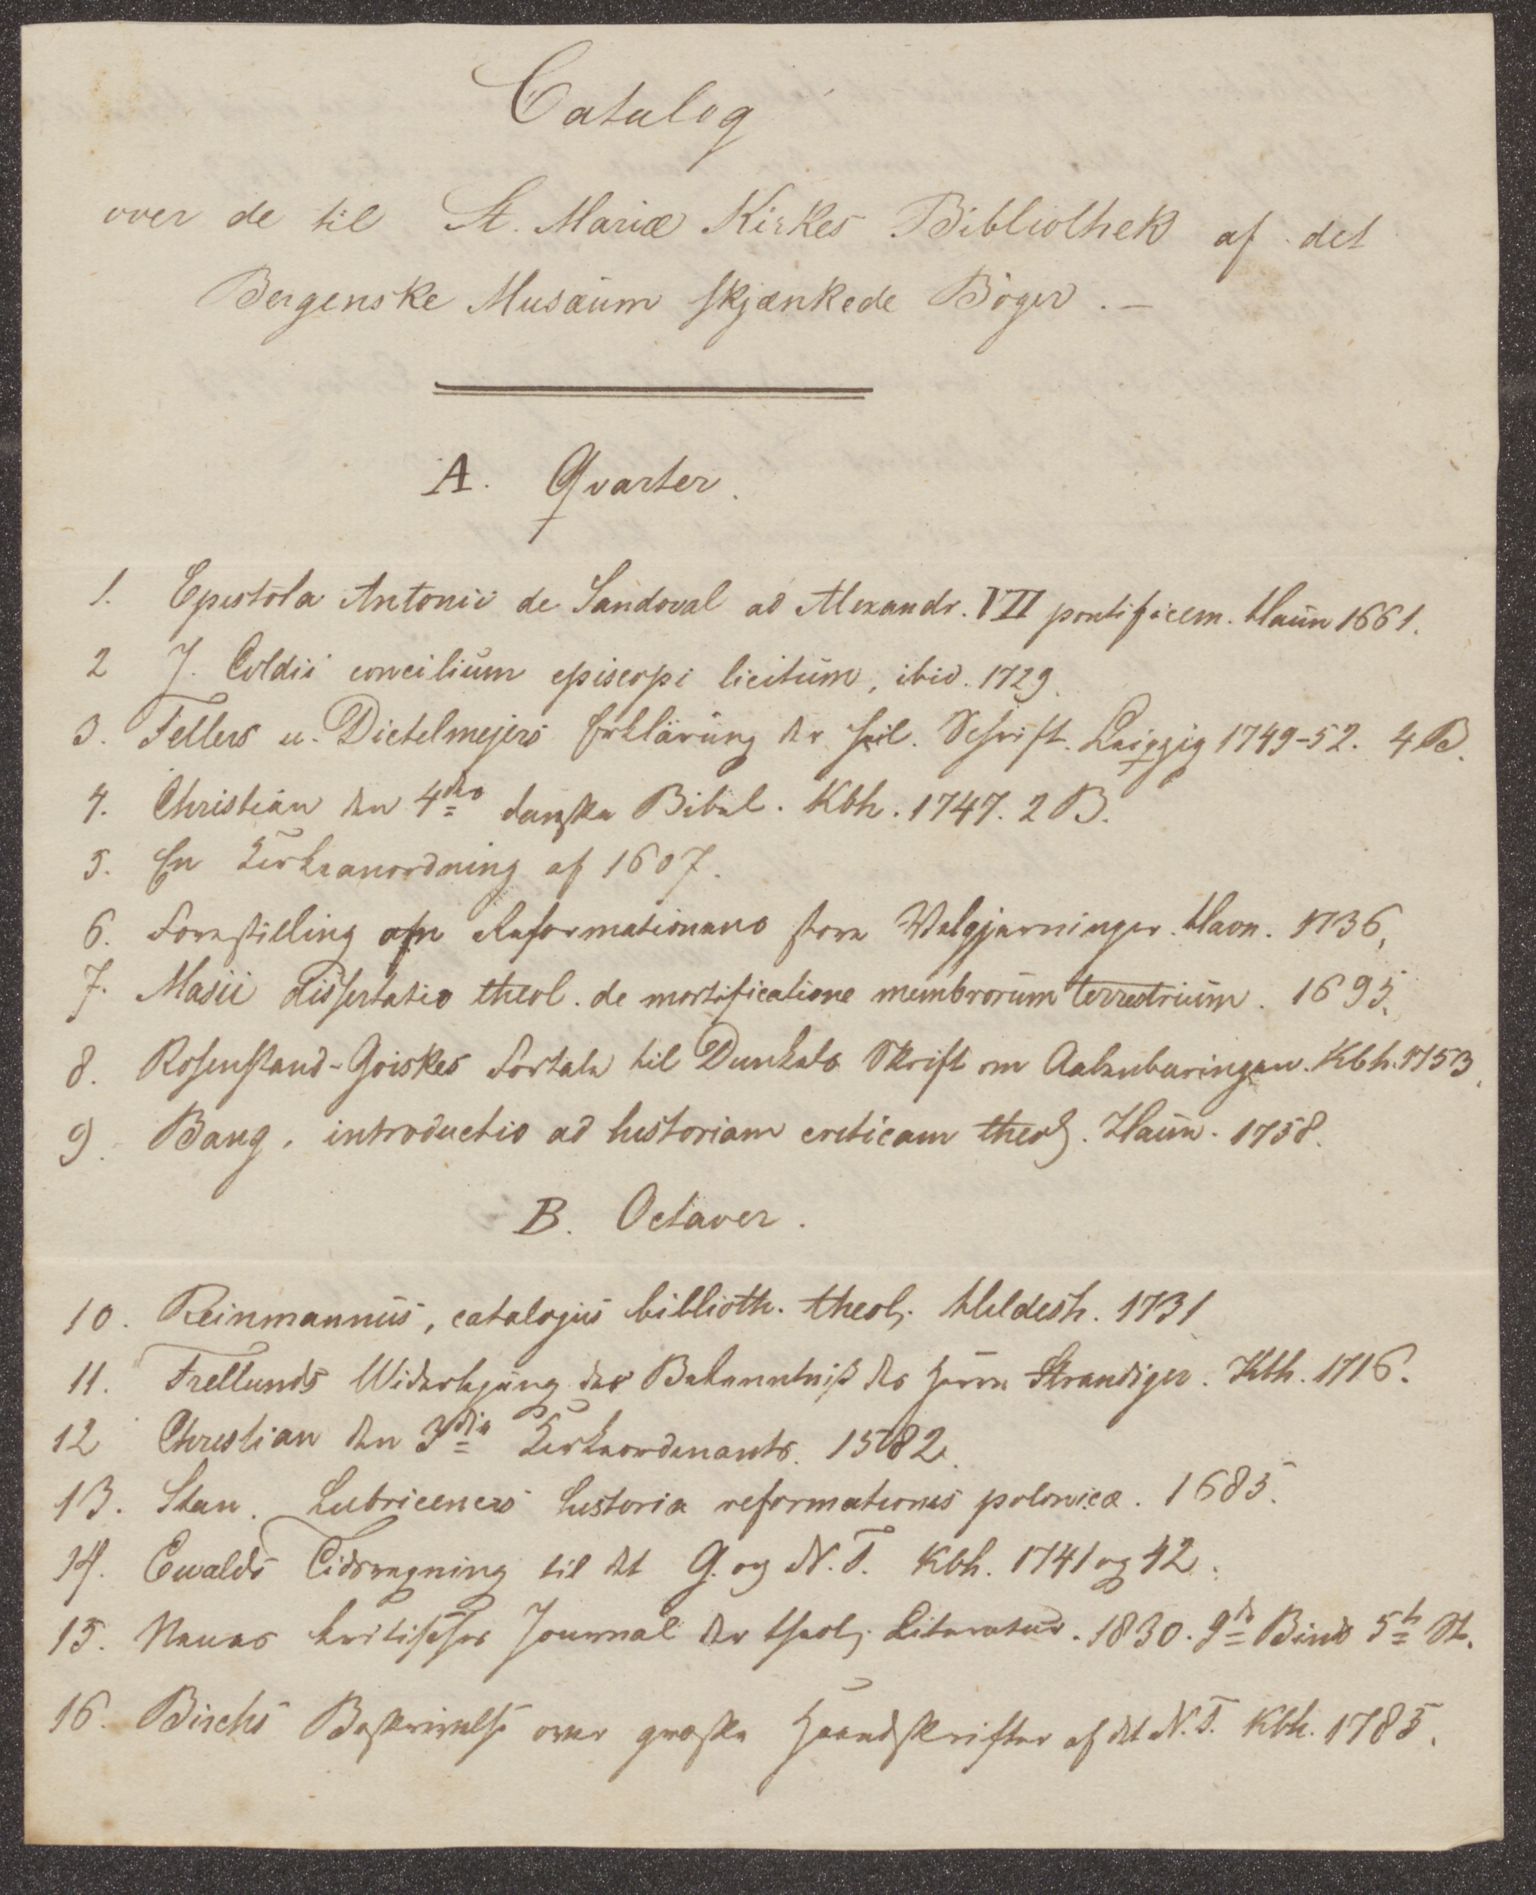 Catalog
over de til St. Mariæ Kirkes Bibliothek af det
Bergenske Musæum skjænkede Bøger. —
A. Qvarter.
1. Epistola Antonii de Sandoval ad Alexandr. VII pontificem. Haun 1661.
2 J. Coldii concilium episcopi licitum, ibid. 1729.
3. Tellers u. Dietelmejers Erklärung der heil. Schrift. Leipzig 1749-52. 4 B.
4. Christian den 4des danske Bibel. Kbh. 1747. 2 B.
5. En Kirkeanordning af 1607.
6. Forestilling af Reformationens store Velgjerninger. Havn. 1736.
7. Masii dissertatio theol. de mortificatione membrorum terrestrium. 1695.
8. Rosenstand-Goiskes Fortale til Dunkels Skrift om Aabenbaringen. Kbh. 1753.
9. Bang, introductio ad historiam criticam theol. Haun. 1758.
B. Octaver.
10. Reinmannus, catalogus biblioth. theol. Hildesh. 1731
11. Frellunds Widerlegung des Bekenntniß des Herrn Strandiger. Kbh. 1716.
12 Christian den 3dies Kirkeordenants. 1582.
13. Stan. Lubriceners historia reformationis polonicæ. 1685.
14. Ewalds Tidsregning til det G. og N. T. Kbh. 1741 og 42.
15. Neues kritisches Journal der theol. Literatur. 1830. 9de Bind 5te St.
16. Birchs Beskrivelse over græske Haandskrifter af det N. T. Kbh. 1785.